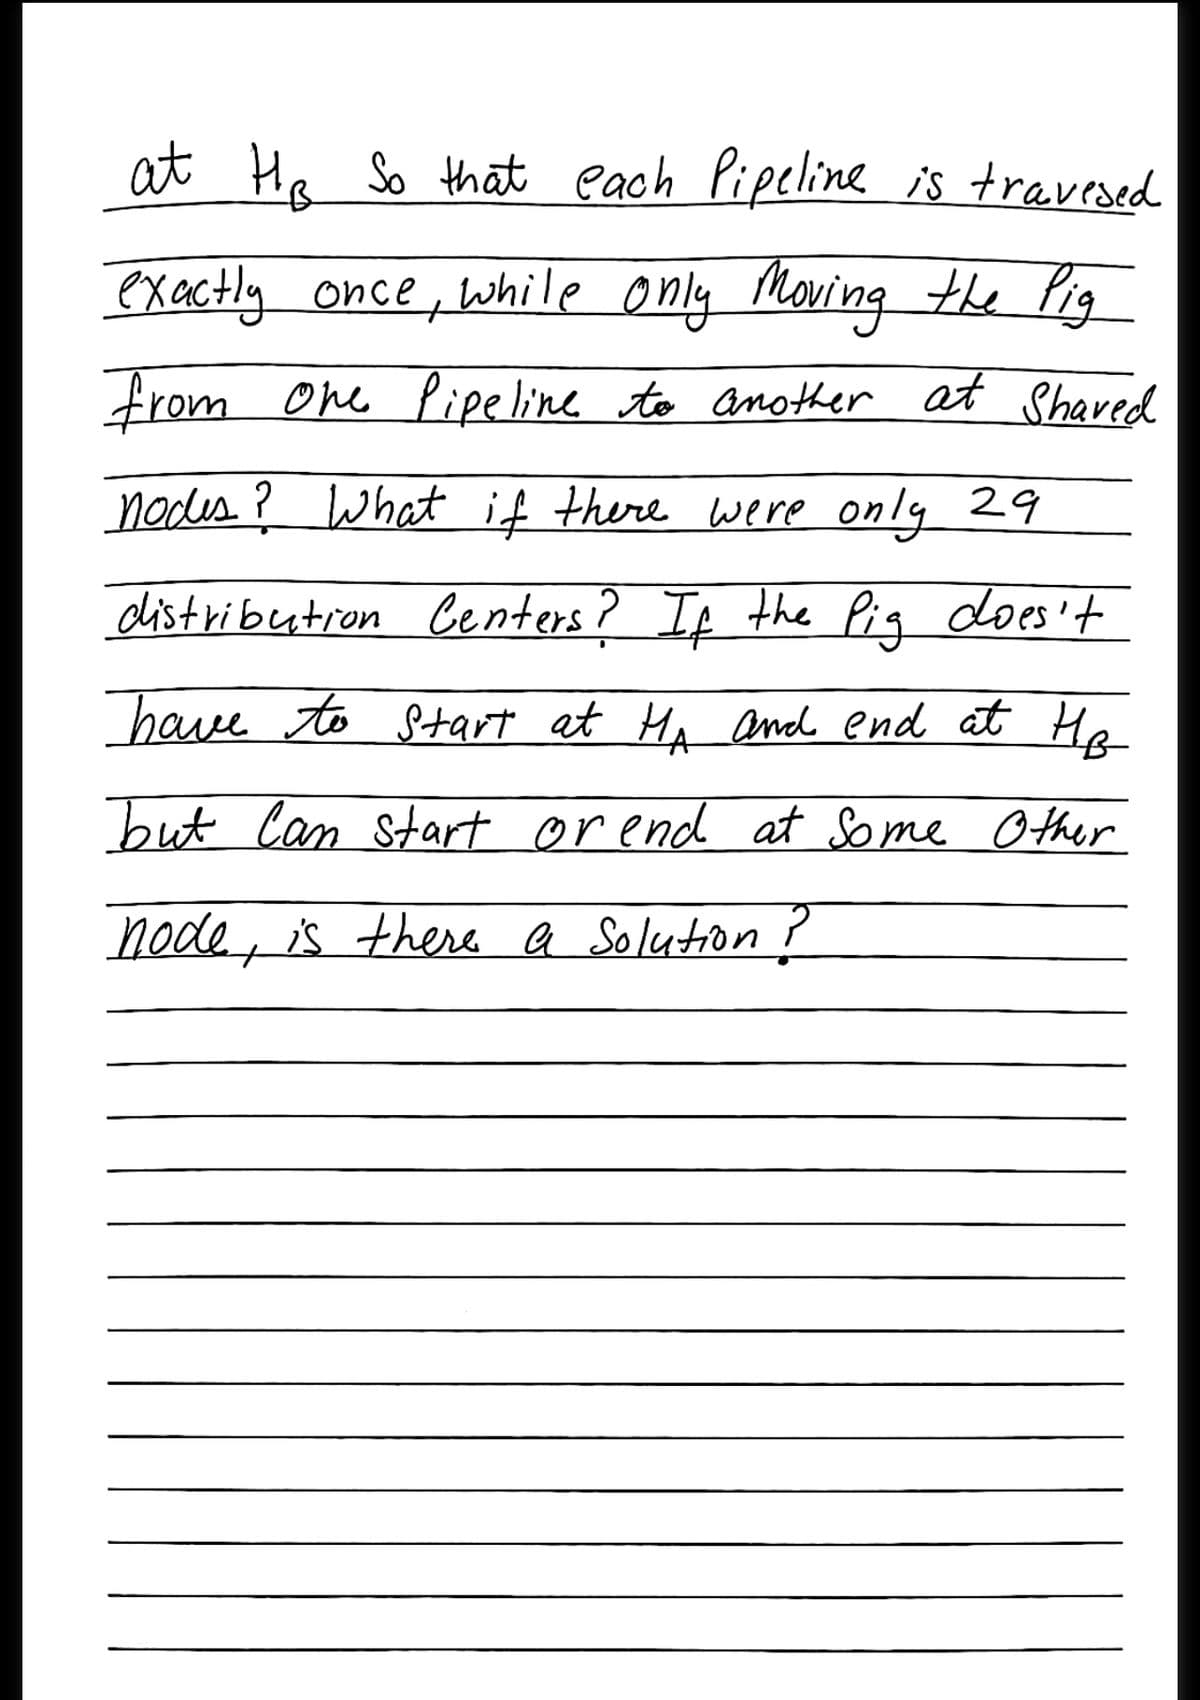 at H_B So that each Pipeline is travesed
exactly once, while only Moving the Pig
from one Pipeline to another at Shared
nodes? What if there were only 29
distribution Centers? If the Pig does't
have to Start at H_A and end at H_B
but Can start or end at Some Other
node, is there a Solution?